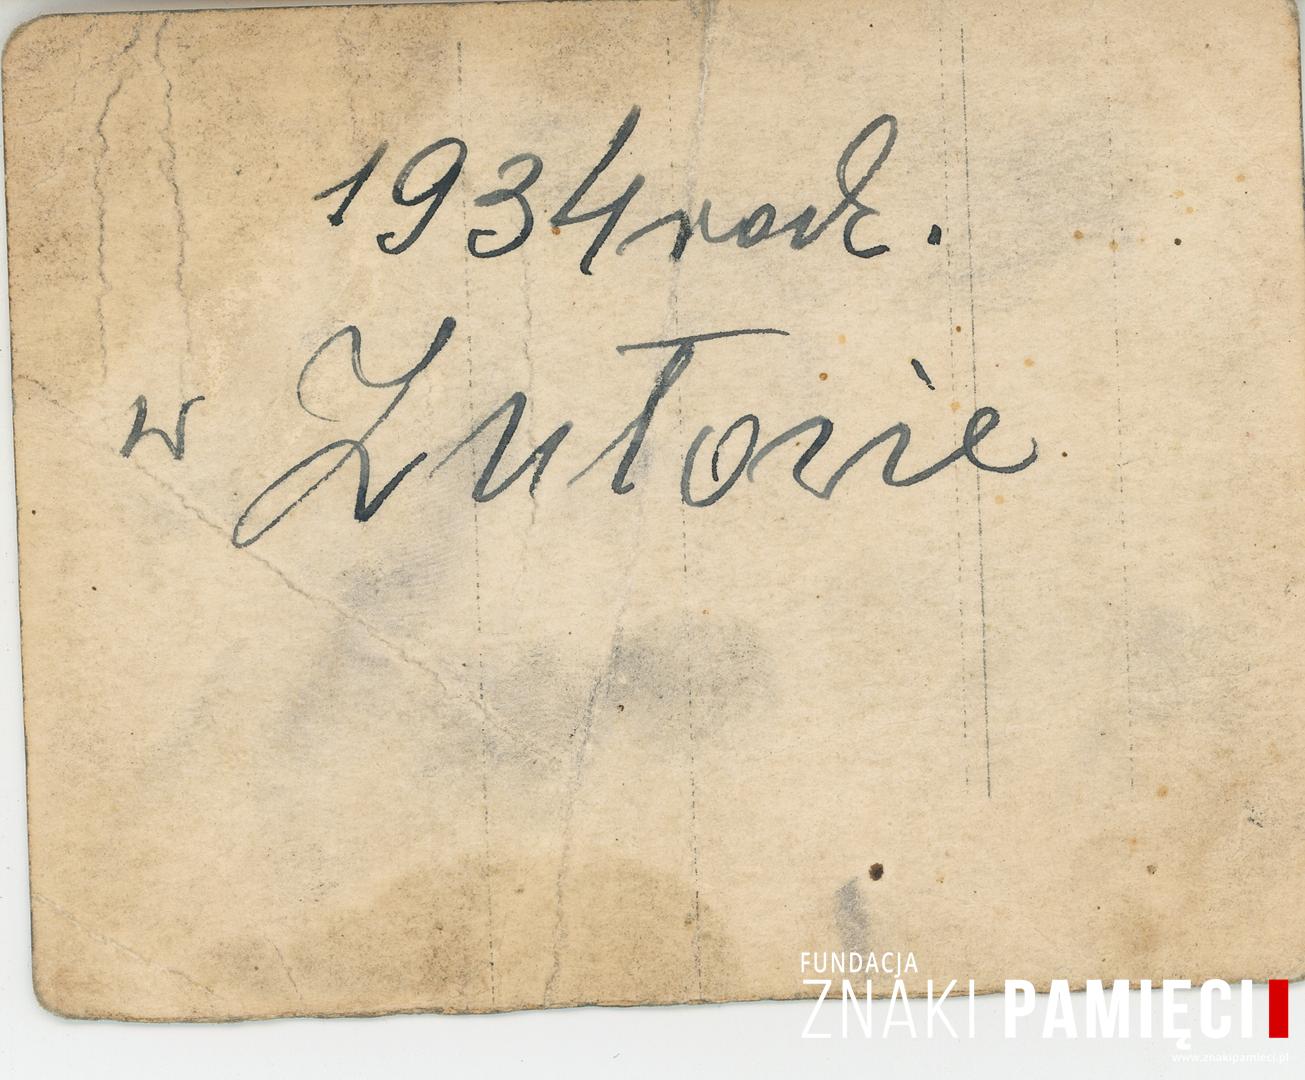 1934 rok.
w Zułowie
FUNDACJA
ZNAKI PAMIĘCI
www.znakipamieci.pl